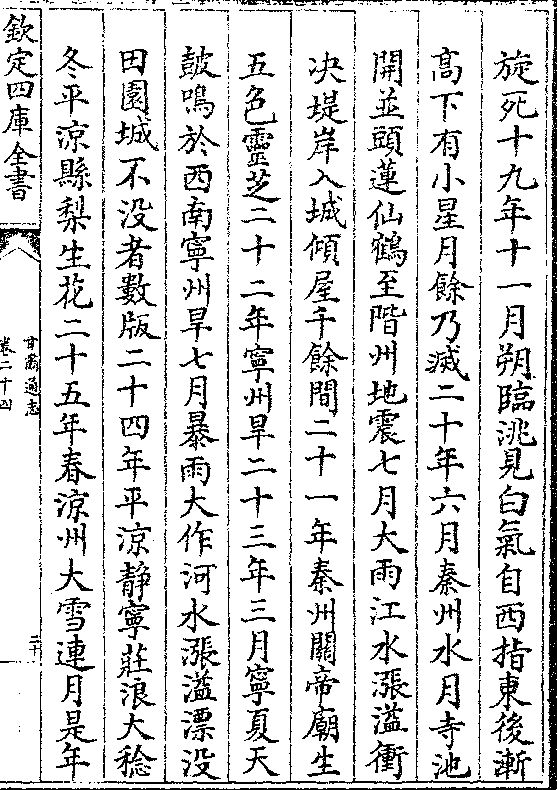 旋死十九年十一月朔臨洮見白氣自西指東後漸
高下有小星月餘乃滅二十年六月秦州水月寺池
開並頭蓮仙鶴至階州地震七月大雨江水漲溢衝
决堤岸入城傾屋千餘間二十一年秦州關帝廟生
五色靈芝二十二年寧州旱二十三年三月寧夏天
鼓鳴於西南寧州旱七月暴雨大作河水漲溢漂没
田園城不没者數版二十四年平涼靜寧莊浪大稔
冬平涼縣梨生花二十五年春涼州大雪連月是年
欽定四庫全書
甘肅通志
卷二十四